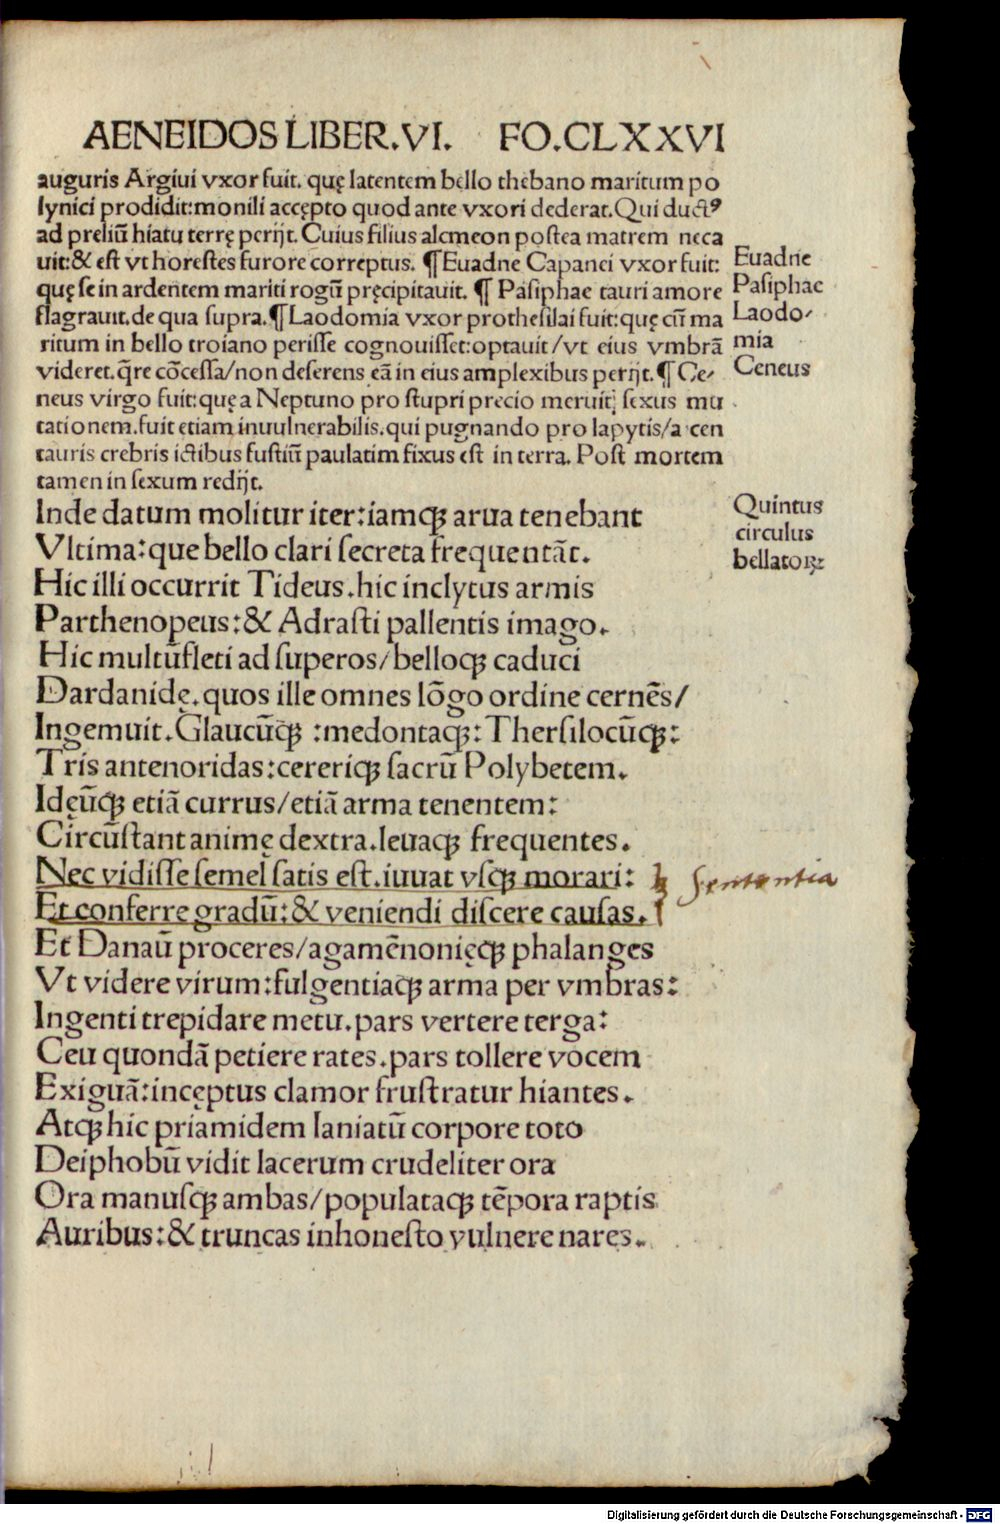 AENEIDOS LIBER.VI. FO.CLXXVI
auguris Argiui vxor fuit. quę latentem bello thebano maritum po
lynici prodidit:monili accępto quod ante vxori dederat.Qui ductꝰ
ad preliū hiatu terrę perijt. Cuius filius alcmeon postea matrem neca
uit:& est vt horestes furore correptus. ¶Euadne Capanei vxor fuit:
quę se in ardentem mariti rogū pręcipitauit. ¶ Pasiphae tauri amore
flagrauit.de qua supra.¶Laodomia vxor prothesilai fuit:quę cū ma
ritum in bello troiano perisse cognouisset:optauit/vt eius vmbrā
videret.q̄re cōcessa/non deserens eā in eius amplexibus perijt.¶ Ce-
neus virgo fuit:quę a Neptuno pro stupri precio meruit sexus mu
tationem.fuit etiam inuulnerabilis.qui pugnando pro lapytis/a cen
tauris crebris ictibus fustiū paulatim fixus est in terra. Post mortem
tamen in sexum redijt.
Euadne
Pasiphae
Laodo-
mia
Ceneus
Inde datum molitur iter:iamqꝫ arua tenebant
Vltima:que bello clari secreta frequentāt.
Hic illi occurrit Tideus.hic inclytus armis
Parthenopeus:& Adrasti pallentis imago.
Hic multūfleti ad superos/belloqꝫ caduci
Dardanidę.quos ille omnes lōgo ordine cernēs/
Ingemuit.Glaucūqꝫ :medontaqꝫ:Thersilocūqꝫ:
Tris antenoridas:cereriqꝫ sacrū Polybetem.
Idęūqꝫ etiā currus/etiā arma tenentem:
Circūstant animę dextra.leuaqꝫ frequentes.
Nec vidisse semel satis est.iuuat vsqꝫ morari:
Et conferre gradū:& veniendi discere causas.
Et Danaū proceres/agamēnonięqꝫ phalanges
Vt videre virum:fulgentiaqꝫ arma per vmbras:
Ingenti trepidare metu.pars vertere terga:
Ceu quondā petiere rates.pars tollere vocem
Exiguā:incęptus clamor frustratur hiantes.
Atqꝫ hic priamidem laniatū corpore toto
Deiphobū vidit lacerum crudeliter ora
Ora manusqꝫ ambas/populataqꝫ tēpora raptis
Auribus:& truncas inhonesto vulnere nares.
Quintus
circulus
bellatoꝝ
Sententia
Digitalisierung gefördert durch die Deutsche Forschungsgemeinschaft - DFG